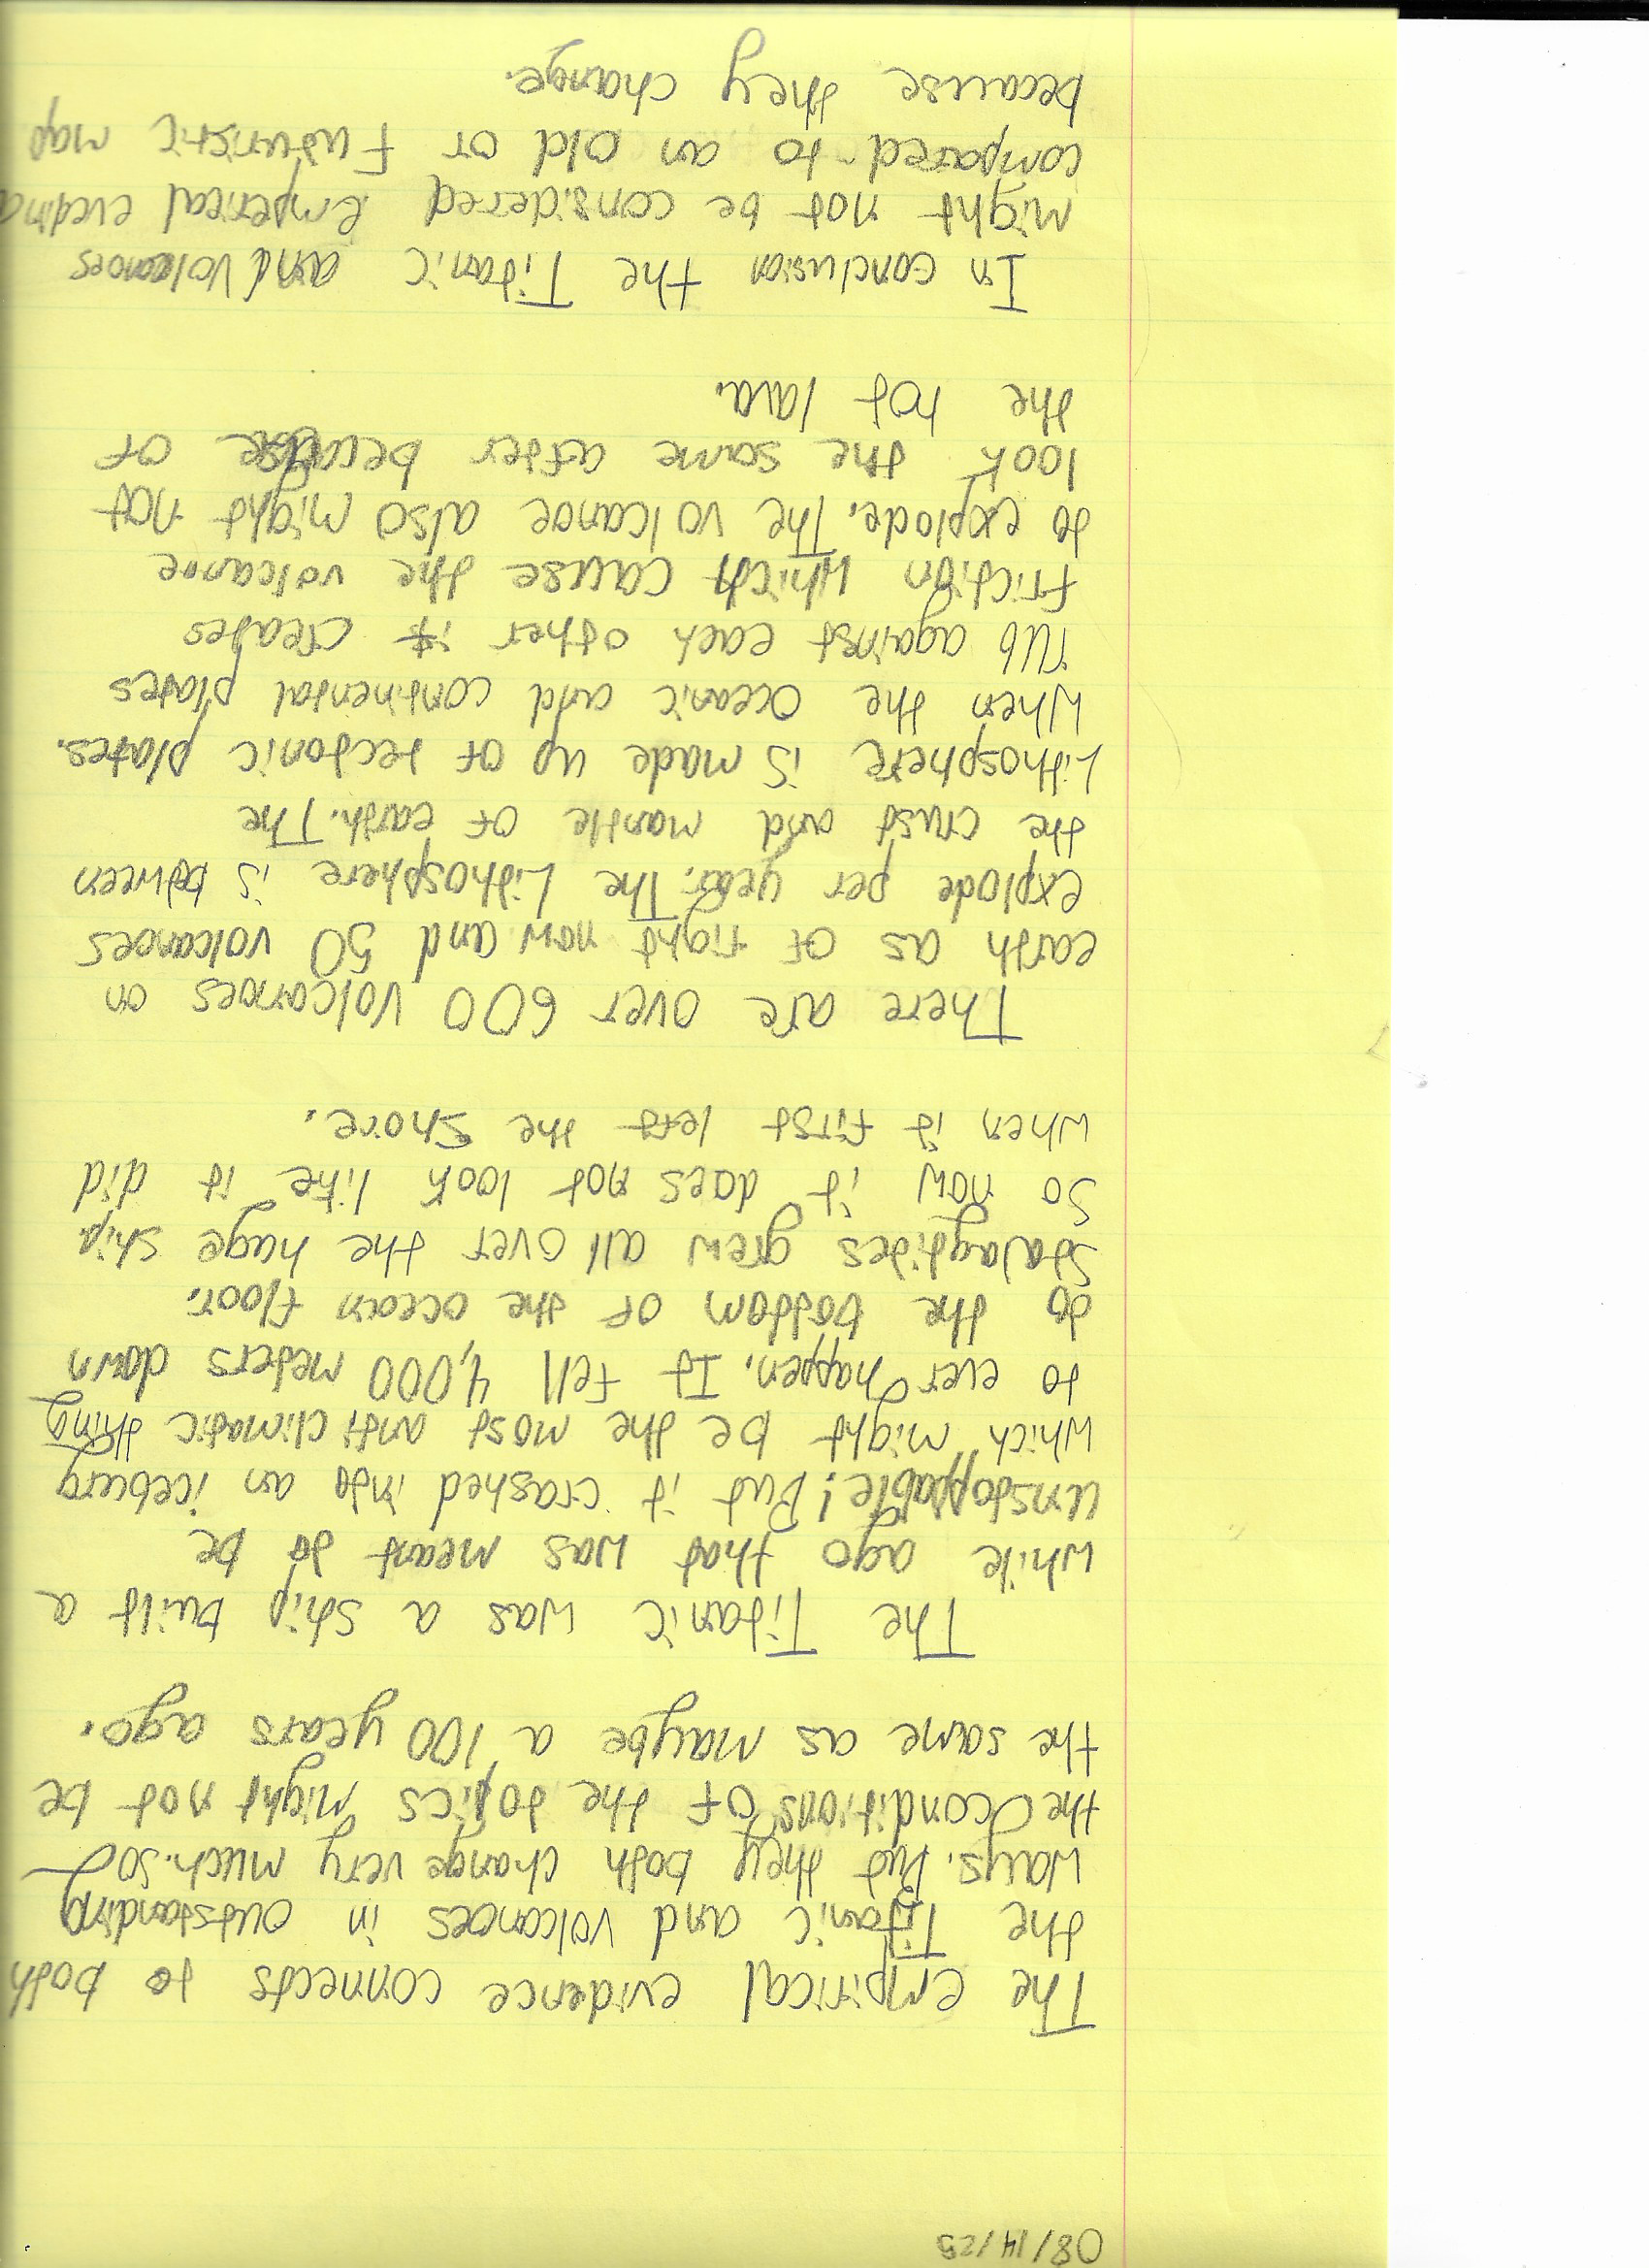 08/14/25
The empirical evidence connects to both
the Titanic and volcanoes in outstanding
ways. But they both change very much. So
the conditions of the topics might not be
the same as maybe a 100 years ago.
The Titanic was a ship built a
while ago that was meant to be
unstoppable! But it crashed into an iceburg
which might be the most anti climatic thing
to ever happen. It fell 4,000 meters down
to the bottom of the ocean floor.
Stalagtites grew all over the huge ship
so now it does not look like it did
when it first left the shore.
There are over 600 volcanoes on
earth as of right now and 50 volcanoes
explode per year. The Lithosphere is between
the crust and mantle of earth. The
Lithosphere is made up of tectonic plates.
When the oceanic and continental plates
rub against each other it creates
friction which cause the volcanoe
to explode. The volcanoe also might not
look the same after because of
the hot lava.
In conclusion the Titanic and volcanoes
might not be considered emperical evedinc
compared to an old or futuristic map
because they change.